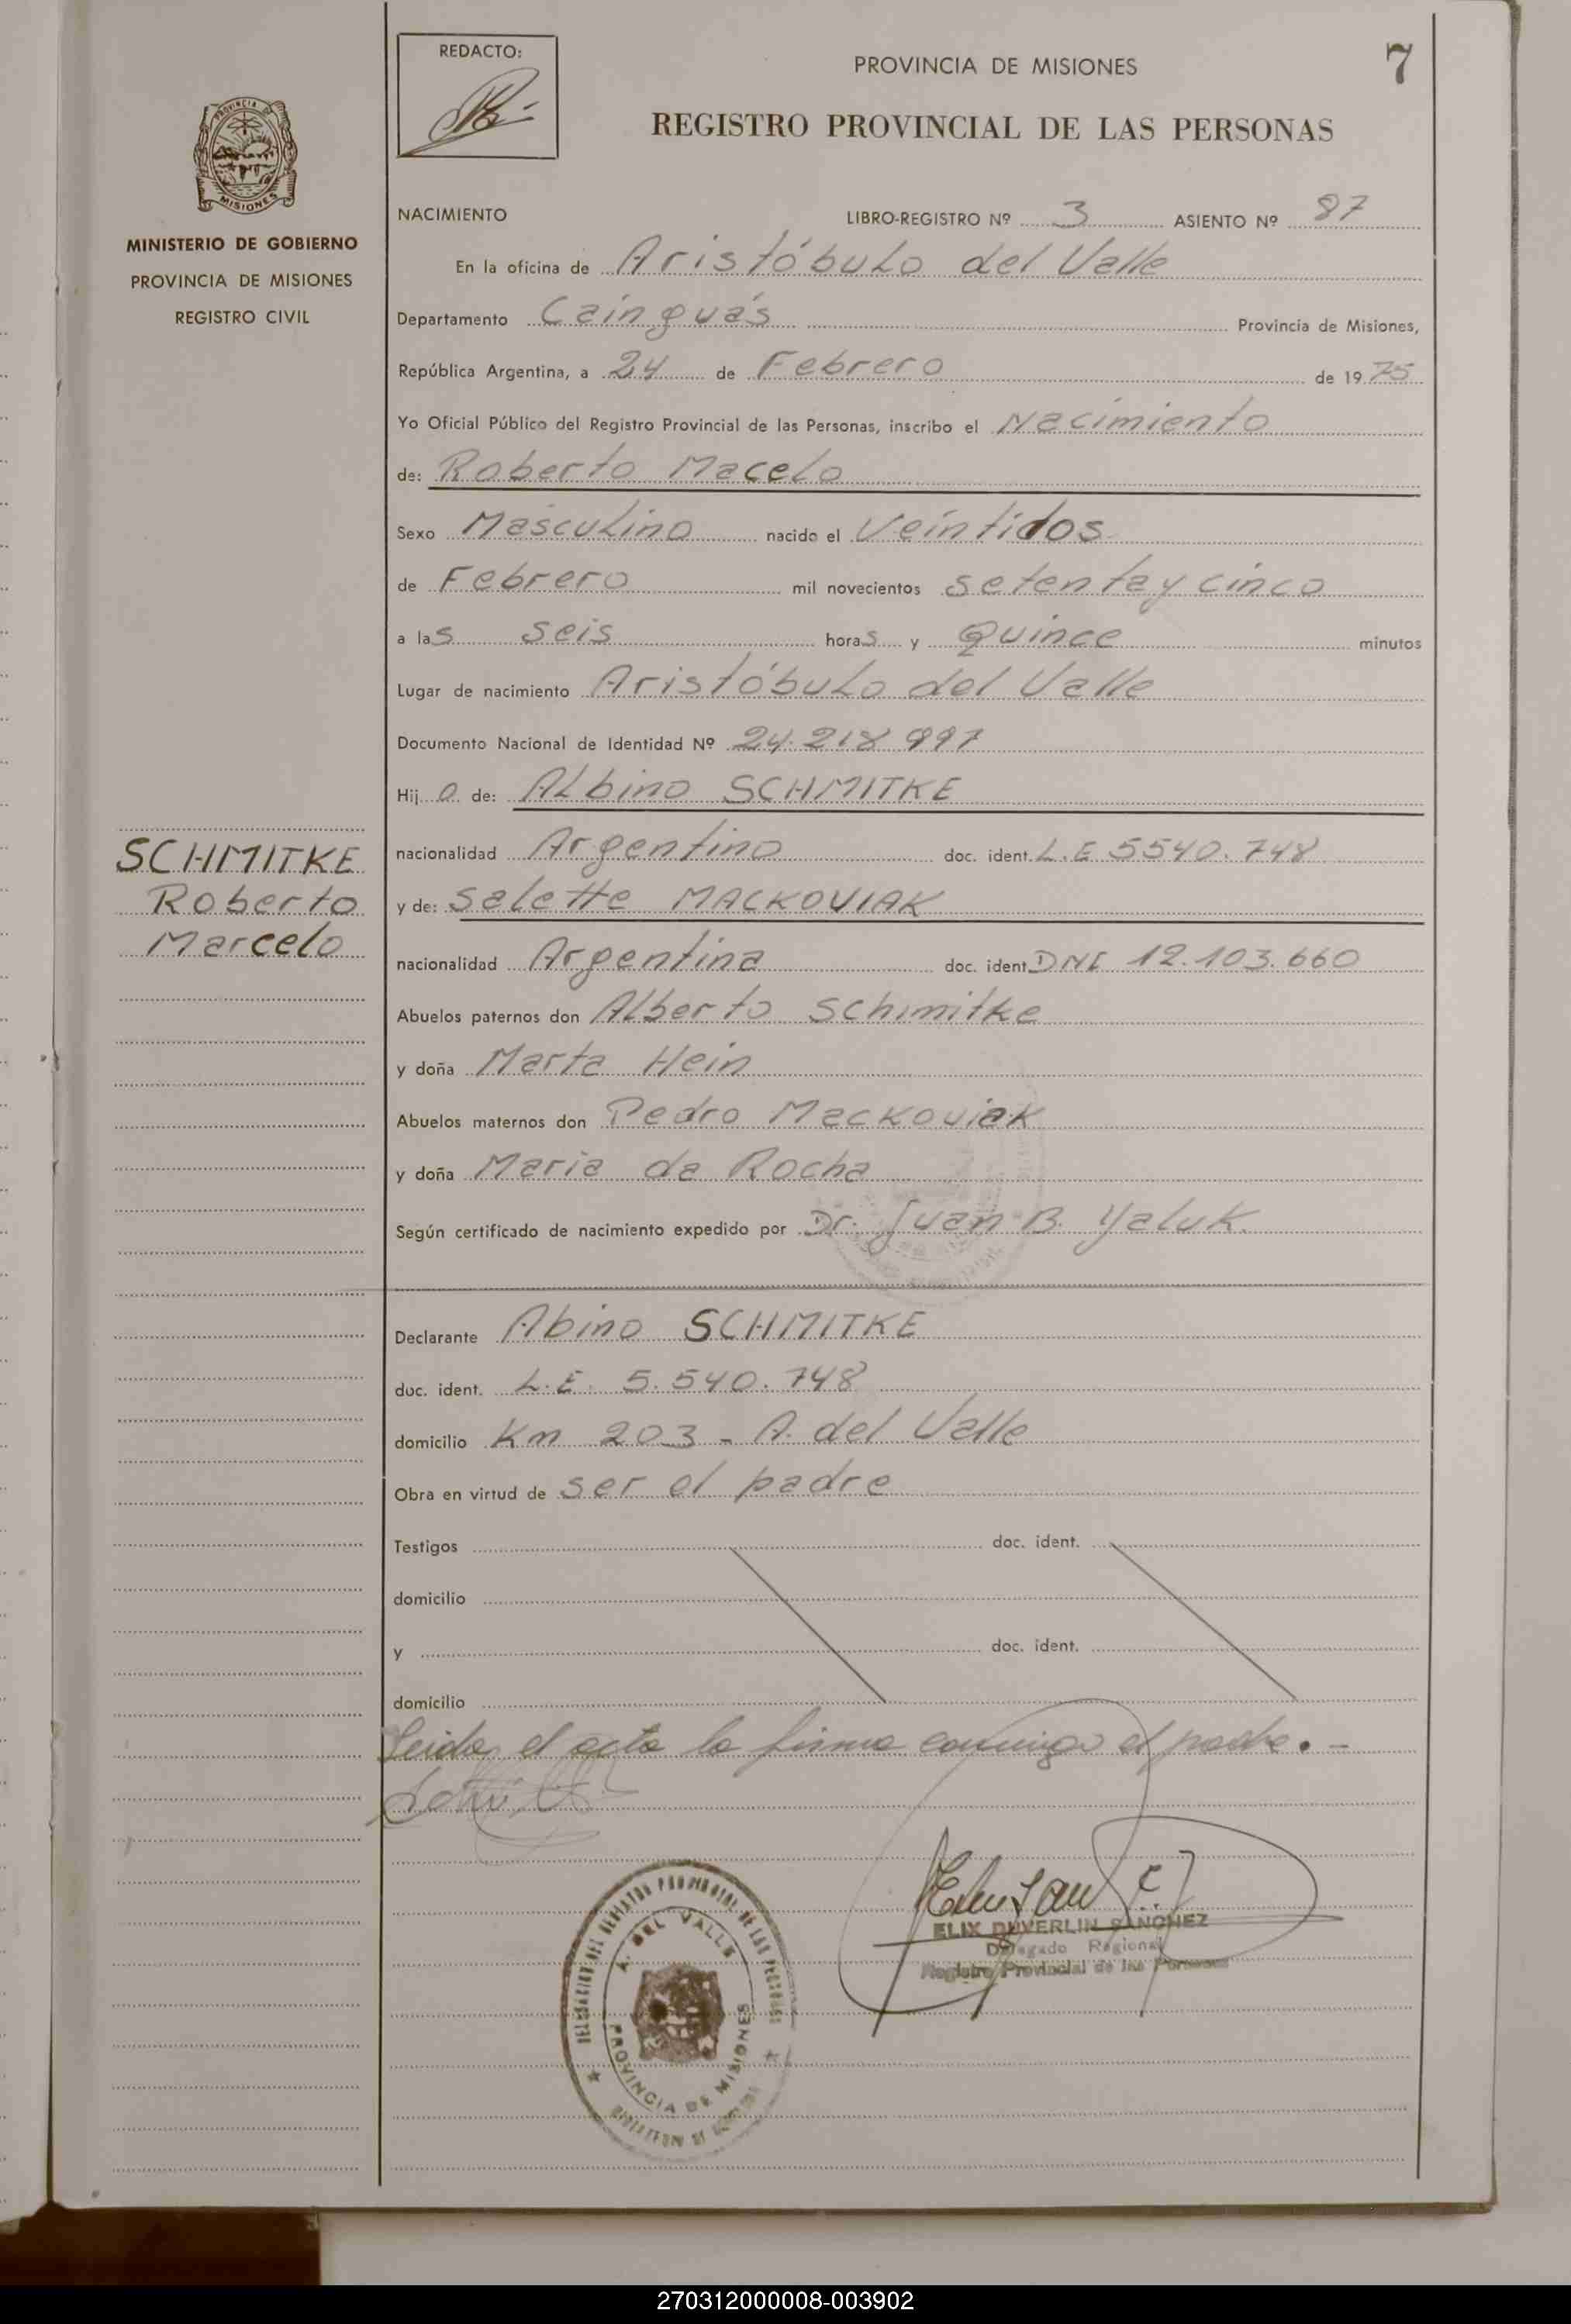 REDACTO:
PROVINCIA DE MISIONES
7
REGISTRO PROVINCIAL DE LAS PERSONAS
PROVINCIA DE
MISIONES
MINISTERIO DE GOBIERNO
PROVINCIA DE MISIONES
REGISTRO CIVIL
NACIMIENTO LIBRO-REGISTRO Nº 3 ASIENTO Nº 87
En la oficina de Aristóbulo del Valle
Departamento Cainguás Provincia de Misiones,
República Argentina, a 24 de Febrero de 1975
Yo Oficial Público del Registro Provincial de las Personas, inscribo el Nacimiento
de: Roberto Macelo
Sexo Masculino nacido el Veintidos
de Febrero mil novecientos setenta y cinco
a las seis horas y Quince minutos
Lugar de nacimiento Aristóbulo del Valle
Documento Nacional de Identidad Nº 24.218 997
Hijo de: Albino SCHMITKE
SCHMITKE
Roberto
Marcelo
nacionalidad Argentino doc. ident. L.E 5540.748
y de: Salette MACKOVIAK
nacionalidad Argentina doc. ident DNI 12.103.660
Abuelos paternos don Alberto Schimitke
y doña Marta Hein
Abuelos maternos don Pedro Mackoviak
y doña Maria da Rocha
Según certificado de nacimiento expedido por Dr. Juan B. Yaluk.
Declarante Abino SCHMITKE
doc. ident. L.E. 5.540.748
domicilio Km 203 - A. del Valle
Obra en virtud de ser el padre
Testigos doc. ident.
domicilio
y doc. ident.
domicilio
Leida el acta la firma conmigo el padre. -
ELIX DUVERLIN SANCHEZ
Delegado Regional
Registro Provincial de las Personas
DELEGACION DEL REGISTRO PROVINCIAL DE LAS PERSONAS
A. DEL VALLE
PROVINCIA DE MISIONES
270312000008-003902